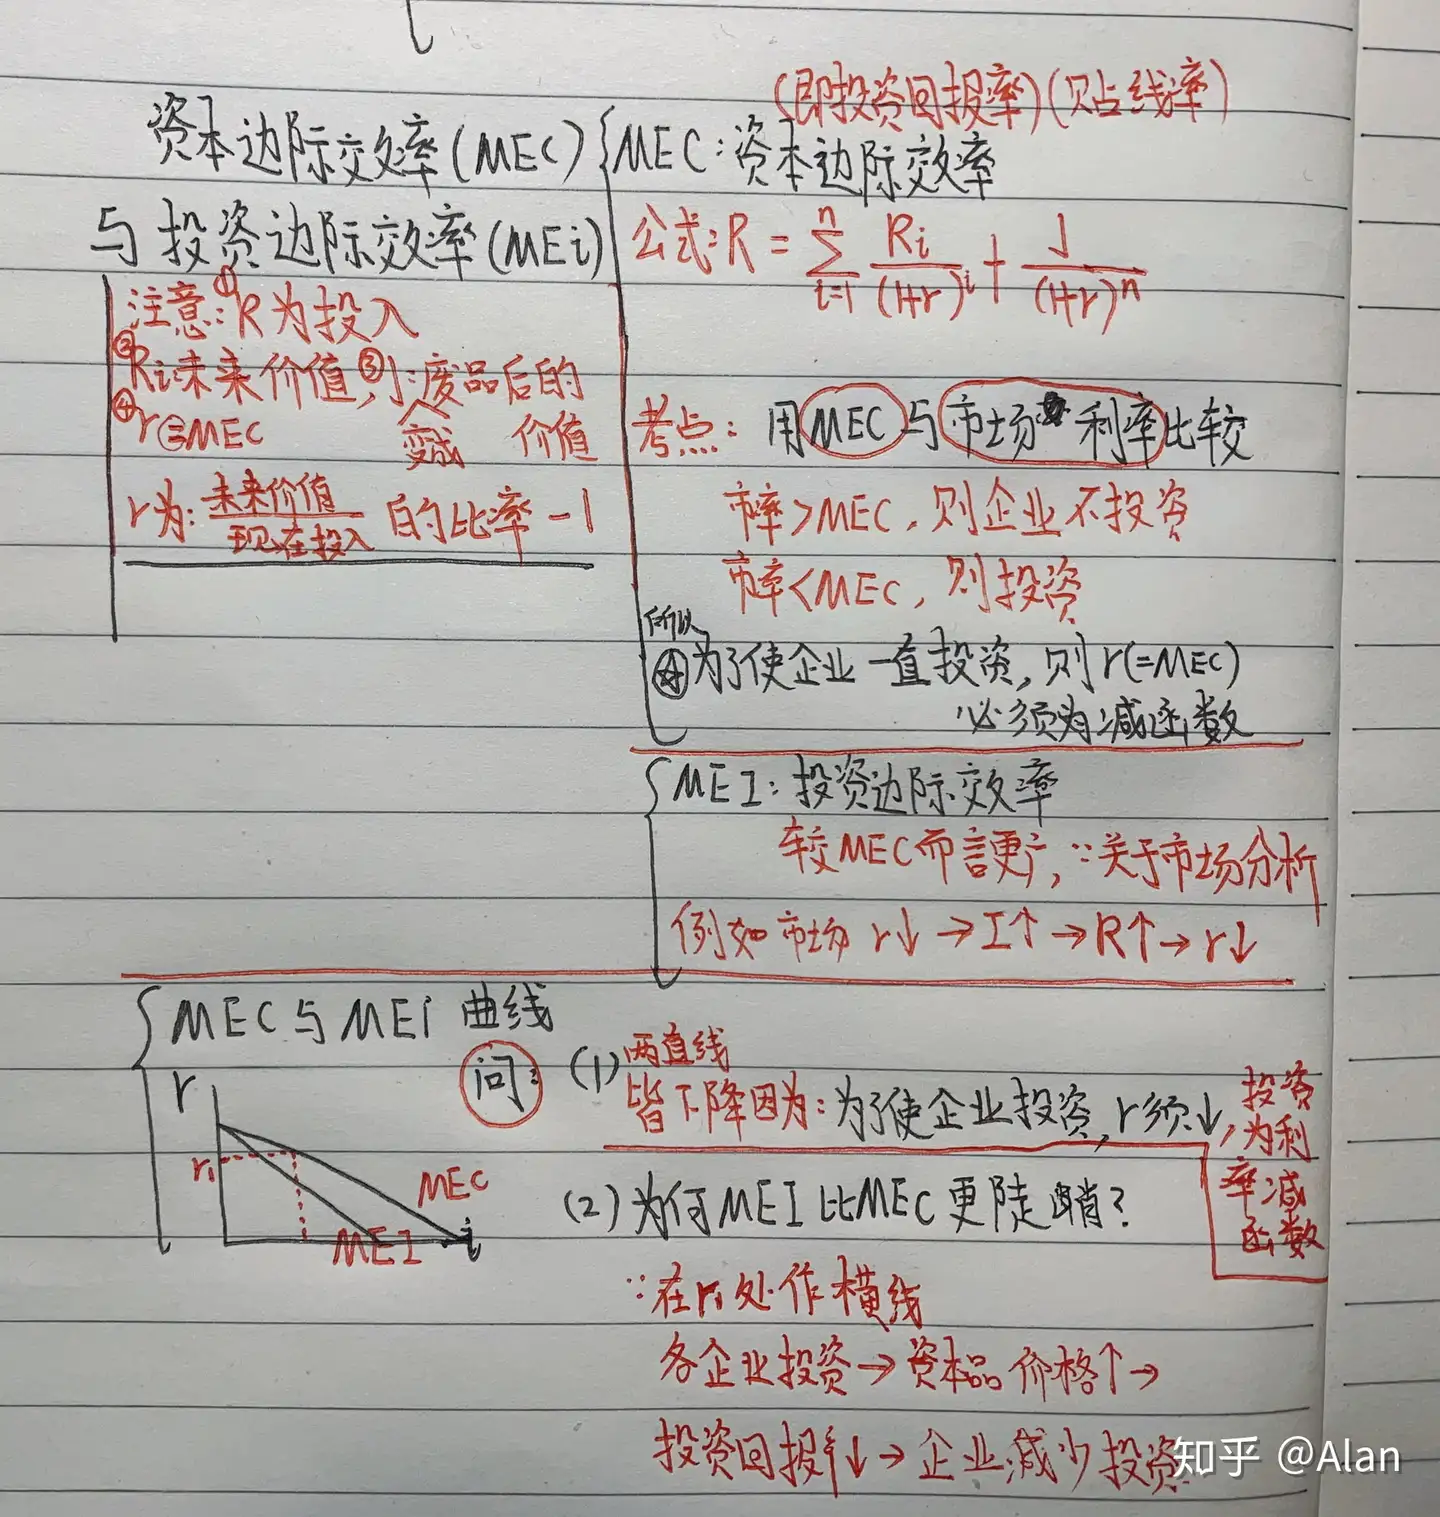 资本边际交效率(MEC)
与投资边际效率(MEi)
注意:①R为投入
②Ri未来价值,③J:废品后的
变成 价值
④r⊜MEC
r为:未来价值/现在投入 的比率-1
(即投资回报率)(贴线率)
MEC:资本边际效率
公式:R = ∑_{i=1}^{n} Ri/(1+r)^i + J/(1+r)^n
考点:用MEC与市场利率比较
市率>MEC,则企业不投资
市率<MEC,则投资
所以
为了使企业一直投资,则r(=MEC)
必须为减函数
MEI:投资边际效率
较MEC而言更广,∵关于市场分析
例如市场 r↓→I↑→R↑→r↓
MEC与MEi曲线
r
r₁
MEC
MEI
i
问:
(1)两直线
皆下降因为:为了使企业投资,r须↓,
投资
为利
率减
函数
(2)为何MEI比MEC更陡峭?
∵在r₁处作横线
各企业投资→资本品价格↑→
投资回报率↓→企业减少投资
知乎 @Alan